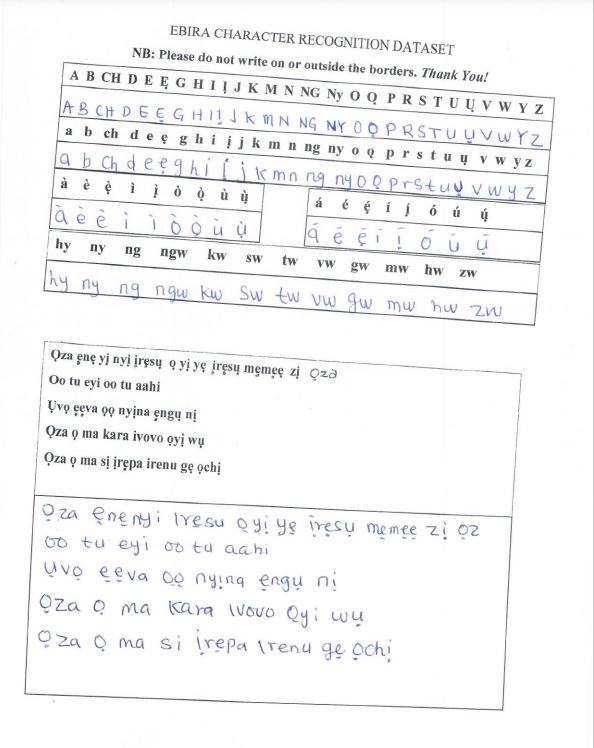 EBIRA CHARACTER RECOGNITION DATASET
NB: Please do not write on or outside the borders. Thank You!
A B CH D E Ẹ G H I Ị J K M N NG Ny O Ọ P R S T U Ụ V W Y Z
A B CH D E Ẹ G H I Ị J K M N NG NY O Ọ P R S T U Ụ V W Y Z
a b ch d e ẹ g h i ị j k m n ng ny o ọ p r s t u ụ v w y z
a b Ch d e ẹ g h i ị j k m n ng ny O Ọ P r S t u Ụ V W Y Z
à è ẹ̀ ì ị̀ ò ọ̀ ù ụ̀
à è ẹ̀ ì ì ò ọ̀ ù ụ̀
á é ẹ́ í ị́ ó ú ụ́
ą́ é ẹ́ í ị́ ó ú ụ́
hy ny ng ngw kw sw tw vw gw mw hw zw
hy ny ng ngw kw sw tw vw gw mw hw zw
Ọza ẹnẹ yị nyị ịrẹsụ ọ yị yẹ ịrẹsụ mẹmẹẹ zị ọza
Oo tu eyi oo tu aahi
Ụvọ ẹẹva ọọ nyịna ẹngụ nị
Ọza ọ ma kara ivovo ọyị wụ
Ọza ọ ma sị ịrẹpa irenu gẹ ọchị
Ọza ẹnẹnyi Iresu ọyị yẹ ịrẹsụ mẹmẹẹ zị ọz
oo tu eyi oo tu aahi
Ụvọ ẹẹva ọọ nyịna ẹngụ nị
Ọza Ọ ma kara Ivovo Ọyi wụ
Ọza Ọ ma si ịrẹpa Irenu gẹ Ọchị